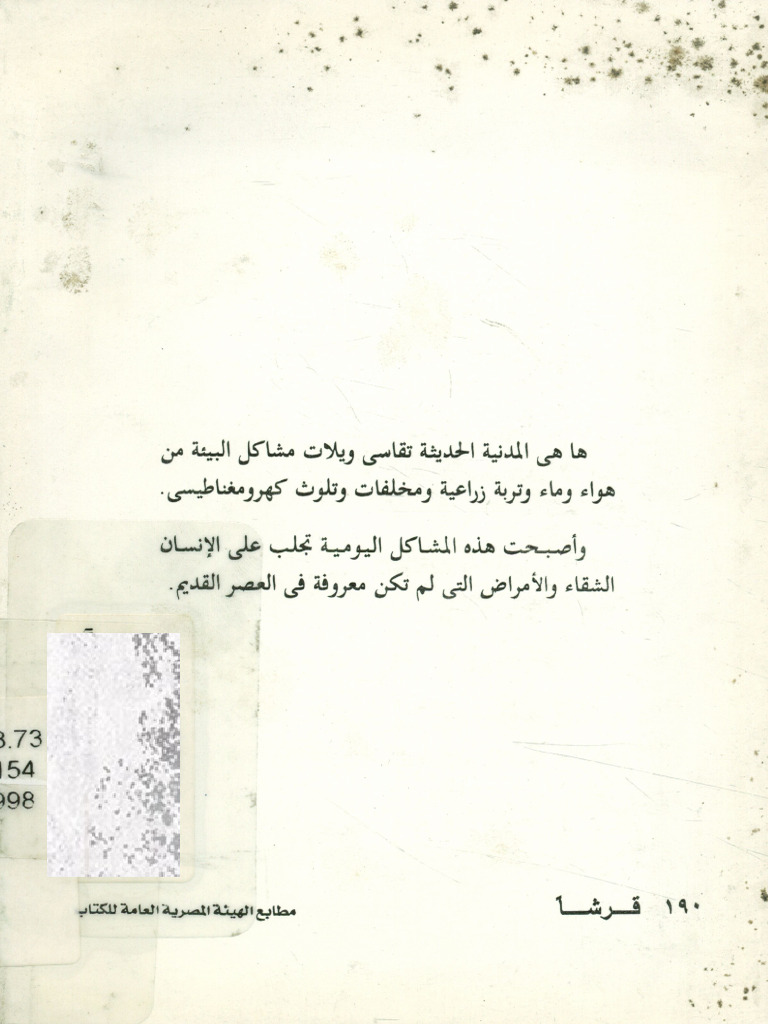 ها هى المدنية الحديثة تقاسى ويلات مشاكل البيئة من
هواء وماء وتربة زراعية ومخلفات وتلوث كهرومغناطيسى.
وأصبحت هذه المشاكل اليومية تجلب على الإنسان
الشقاء والأمراض التى لم تكن معروفة فى العصر القديم.
3.73
154
998
١٩٠ قرشاً
مطابع الهيئة المصرية العامة للكتاب